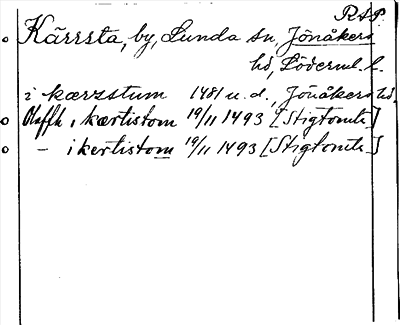 RAP.
Kärrsta, by, Lunda sn, Jönåkers
hd, Söderml. l.
i kærzstum 1481 u.d., Jönåkers hd.
Olaffh i kærtistom 19/11 1493 [Stigtomta]
– i kertistom 19/11 1493 [Stigtomta]